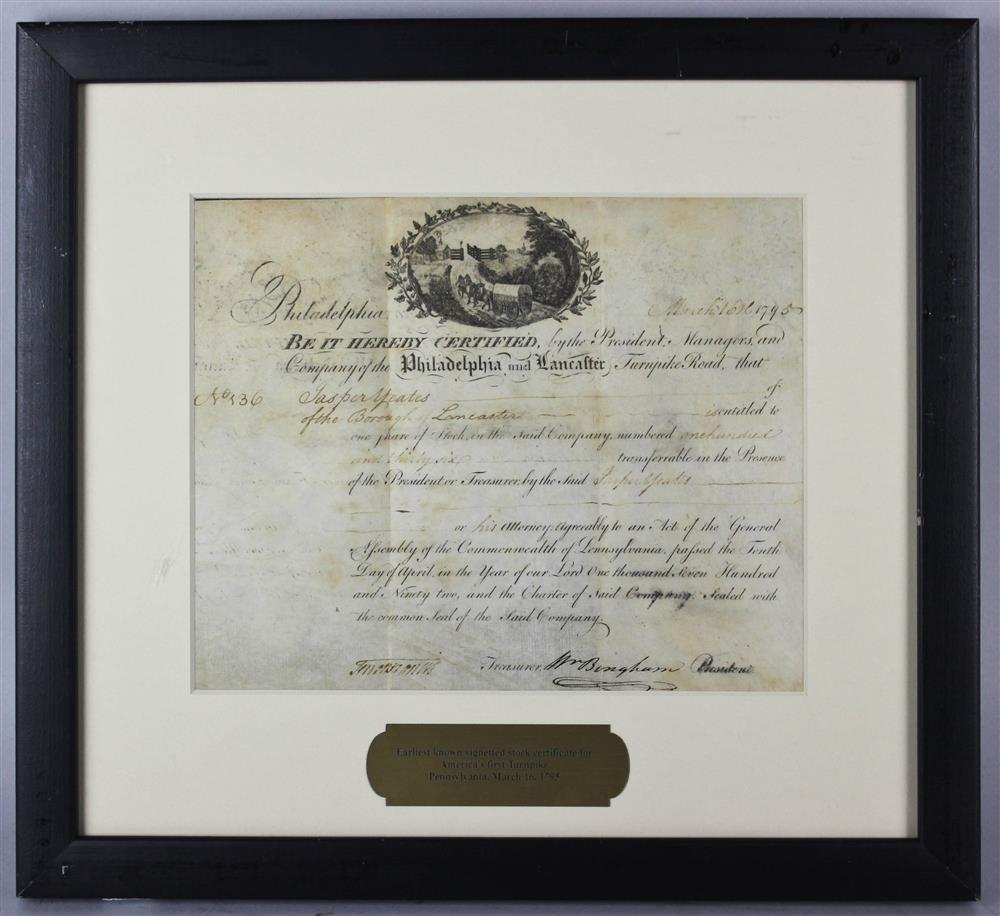 Philadelphia March 16th 1795
BE IT HEREBY CERTIFIED, by the President, Managers, and
Company of the Philadelphia and Lancaster Turnpike Road, that
No 136 Jasper Yeates of
of the Borough of Lancaster is entitled to
one share of Stock, in the said Company, numbered one hundred
and thirty six transferrable in the Presence
of the President or Treasurer, by the said Jasper Yeates
or his Attorney, agreeably to an Act of the General
Assembly of the Commonwealth of Pennsylvania, passed the Tenth
Day of April, in the Year of our Lord One thousand Seven Hundred
and Ninety two, and the Charter of Said Company. Sealed with
the common Seal of the Said Company.
Treasurer. Wm Bingham President
Earliest known signetted stock certificate for
America's first Turnpike
Pennsylvania, March 16, 1795